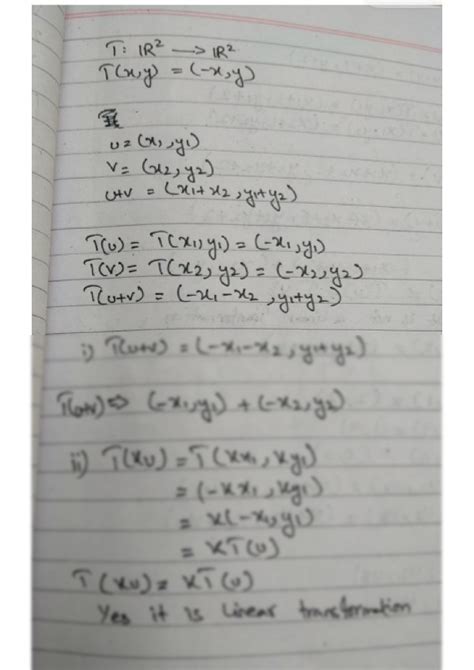 T: IR² → IR²
T(x,y) = (-x,y)
u=(x₁,y₁)
v= (x₂,y₂)
u+v = (x₁+x₂, y₁+y₂)
T(u)= T(x₁,y₁) = (-x₁,y₁)
T(v)= T(x₂,y₂) = (-x₂,y₂)
T(u+v) = (-x₁-x₂, y₁+y₂)
i) T(u+v) = (-x₁-x₂, y₁+y₂)
T(u+v) ⇒ (-x₁,y₁) + (-x₂,y₂)
ii) T(Ku) = T(Kx₁, Ky₁)
= (-Kx₁, Ky₁)
= K(-x₁,y₁)
= KT(u)
T(Ku) = KT(u)
Yes it is linear transformation